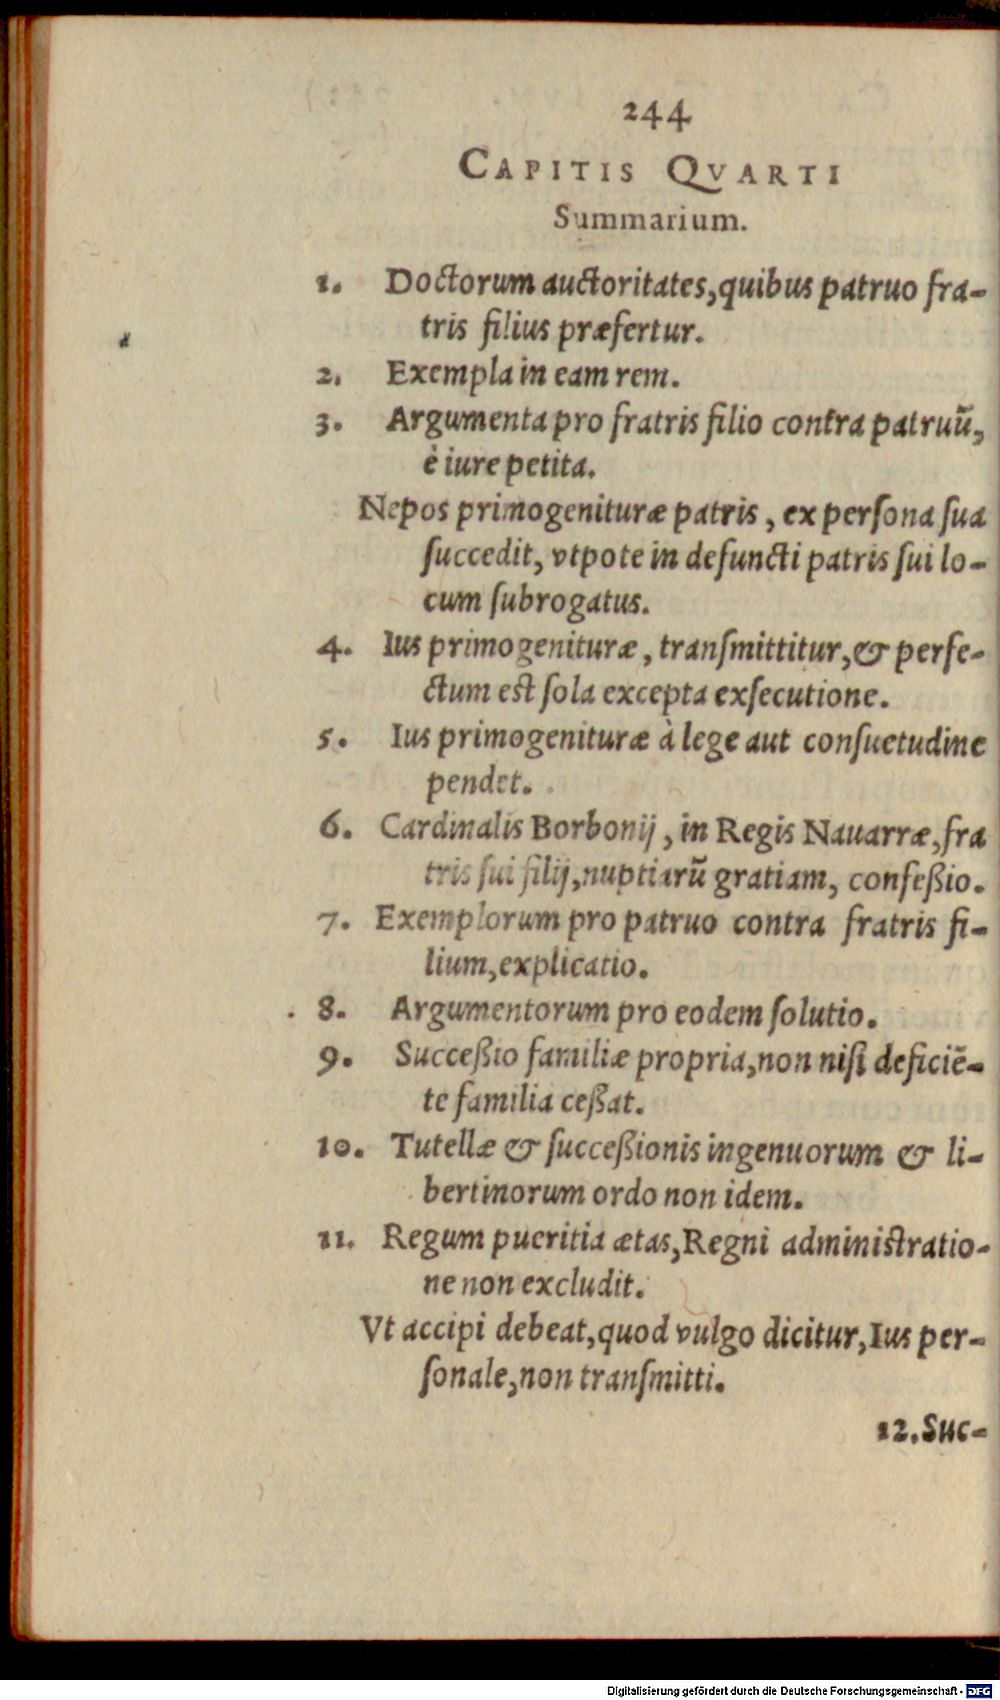 244
CAPITIS QVARTI
Summarium.
1. Doctorum auctoritates,quibus patruo fra-
tris filius præfertur.
2. Exempla in eam rem.
3. Argumenta pro fratris filio contra patruū,
è iure petita.
Nepos primogenituræ patris, ex perſona ſua
ſuccedit, vtpote in defuncti patris ſui lo-
cum ſubrogatus.
4. Ius primogenituræ, tranſmittitur,& perfe-
ctum est ſola excepta exſecutione.
5. Ius primogenituræ à lege aut conſuetudine
pendet.
6. Cardinalis Borbonij, in Regis Nauarræ,fra
tris ſui filij,nuptiarū gratiam, confeßio.
7. Exemplorum pro patruo contra fratris fi-
lium,explicatio.
8. Argumentorum pro eodem ſolutio.
9. Succeßio familiæ propria,non niſi deficiē-
te familia ceßat.
10. Tutellæ & ſucceßionis ingenuorum & li-
bertinorum ordo non idem.
11. Regum pueritia ætas,Regni administratio-
ne non excludit.
Vt accipi debeat,quod vulgo dicitur,Ius per-
ſonale,non tranſmitti.
12.Suc-
Digitalisierung gefördert durch die Deutsche Forschungsgemeinschaft - DFG